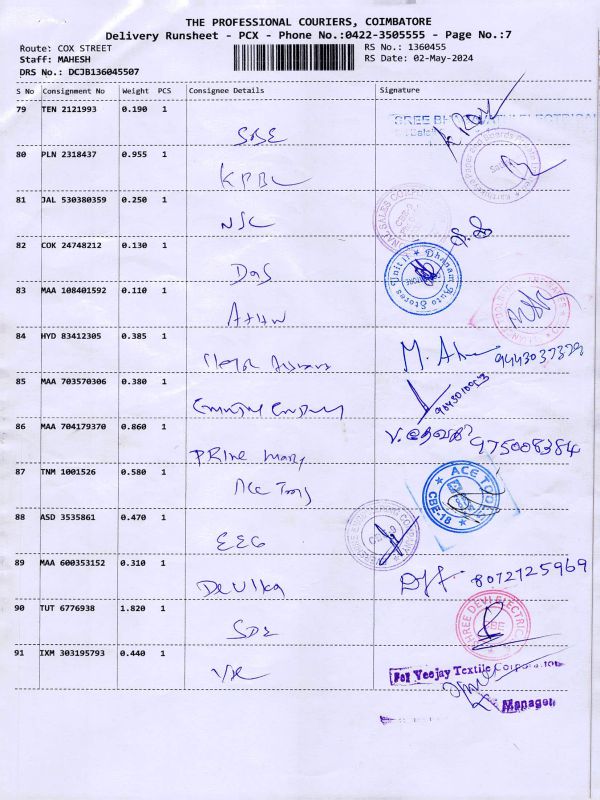 THE PROFESSIONAL COURIERS, COIMBATORE
Delivery Runsheet - PCX - Phone No.:0422-3505555 - Page No.:7
Route: COX STREET RS No.: 1360455
Staff: MAHESH RS Date: 02-May-2024
DRS No.: DCJB136045507
S No Consignment No Weight PCS Consignee Details Signature
79 TEN 2121993 0.190 1
SBE
80 PLN 2318437 0.955 1
KPBC
81 JAL 530380359 0.250 1
NSC
82 COK 24748212 0.130 1
DAS
Dhanam Auto Stores Unit II
83 MAA 108401592 0.110 1
84 HYD 83412305 0.385 1
M.
85 MAA 703570306 0.380 1
86 MAA 704179370 0.860 1
V. தேவகி 975008384
PRIME
87 TNM 1001526 0.580 1
Ace Tools
ACE TOOLS CBE-18
88 ASD 3535861 0.470 1
EEC
89 MAA 600353152 0.310 1
8072725969
Devika
90 TUT 6776938 1.820 1
SDE
SHREE DEVI ELECTRICALS CBE
91 IXM 303195793 0.440 1
For Veejay Textile Corporation
Manager